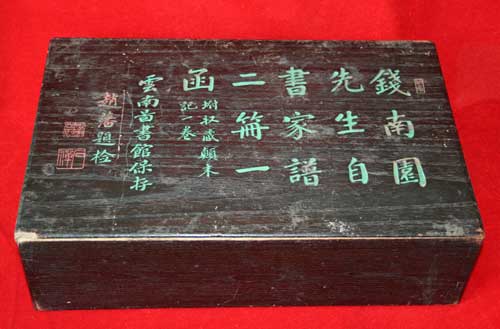 錢南園
先生自
書家譜
二冊一
函
坿收藏顛末
記一卷
雲南啚書館保存
趙藩題檢